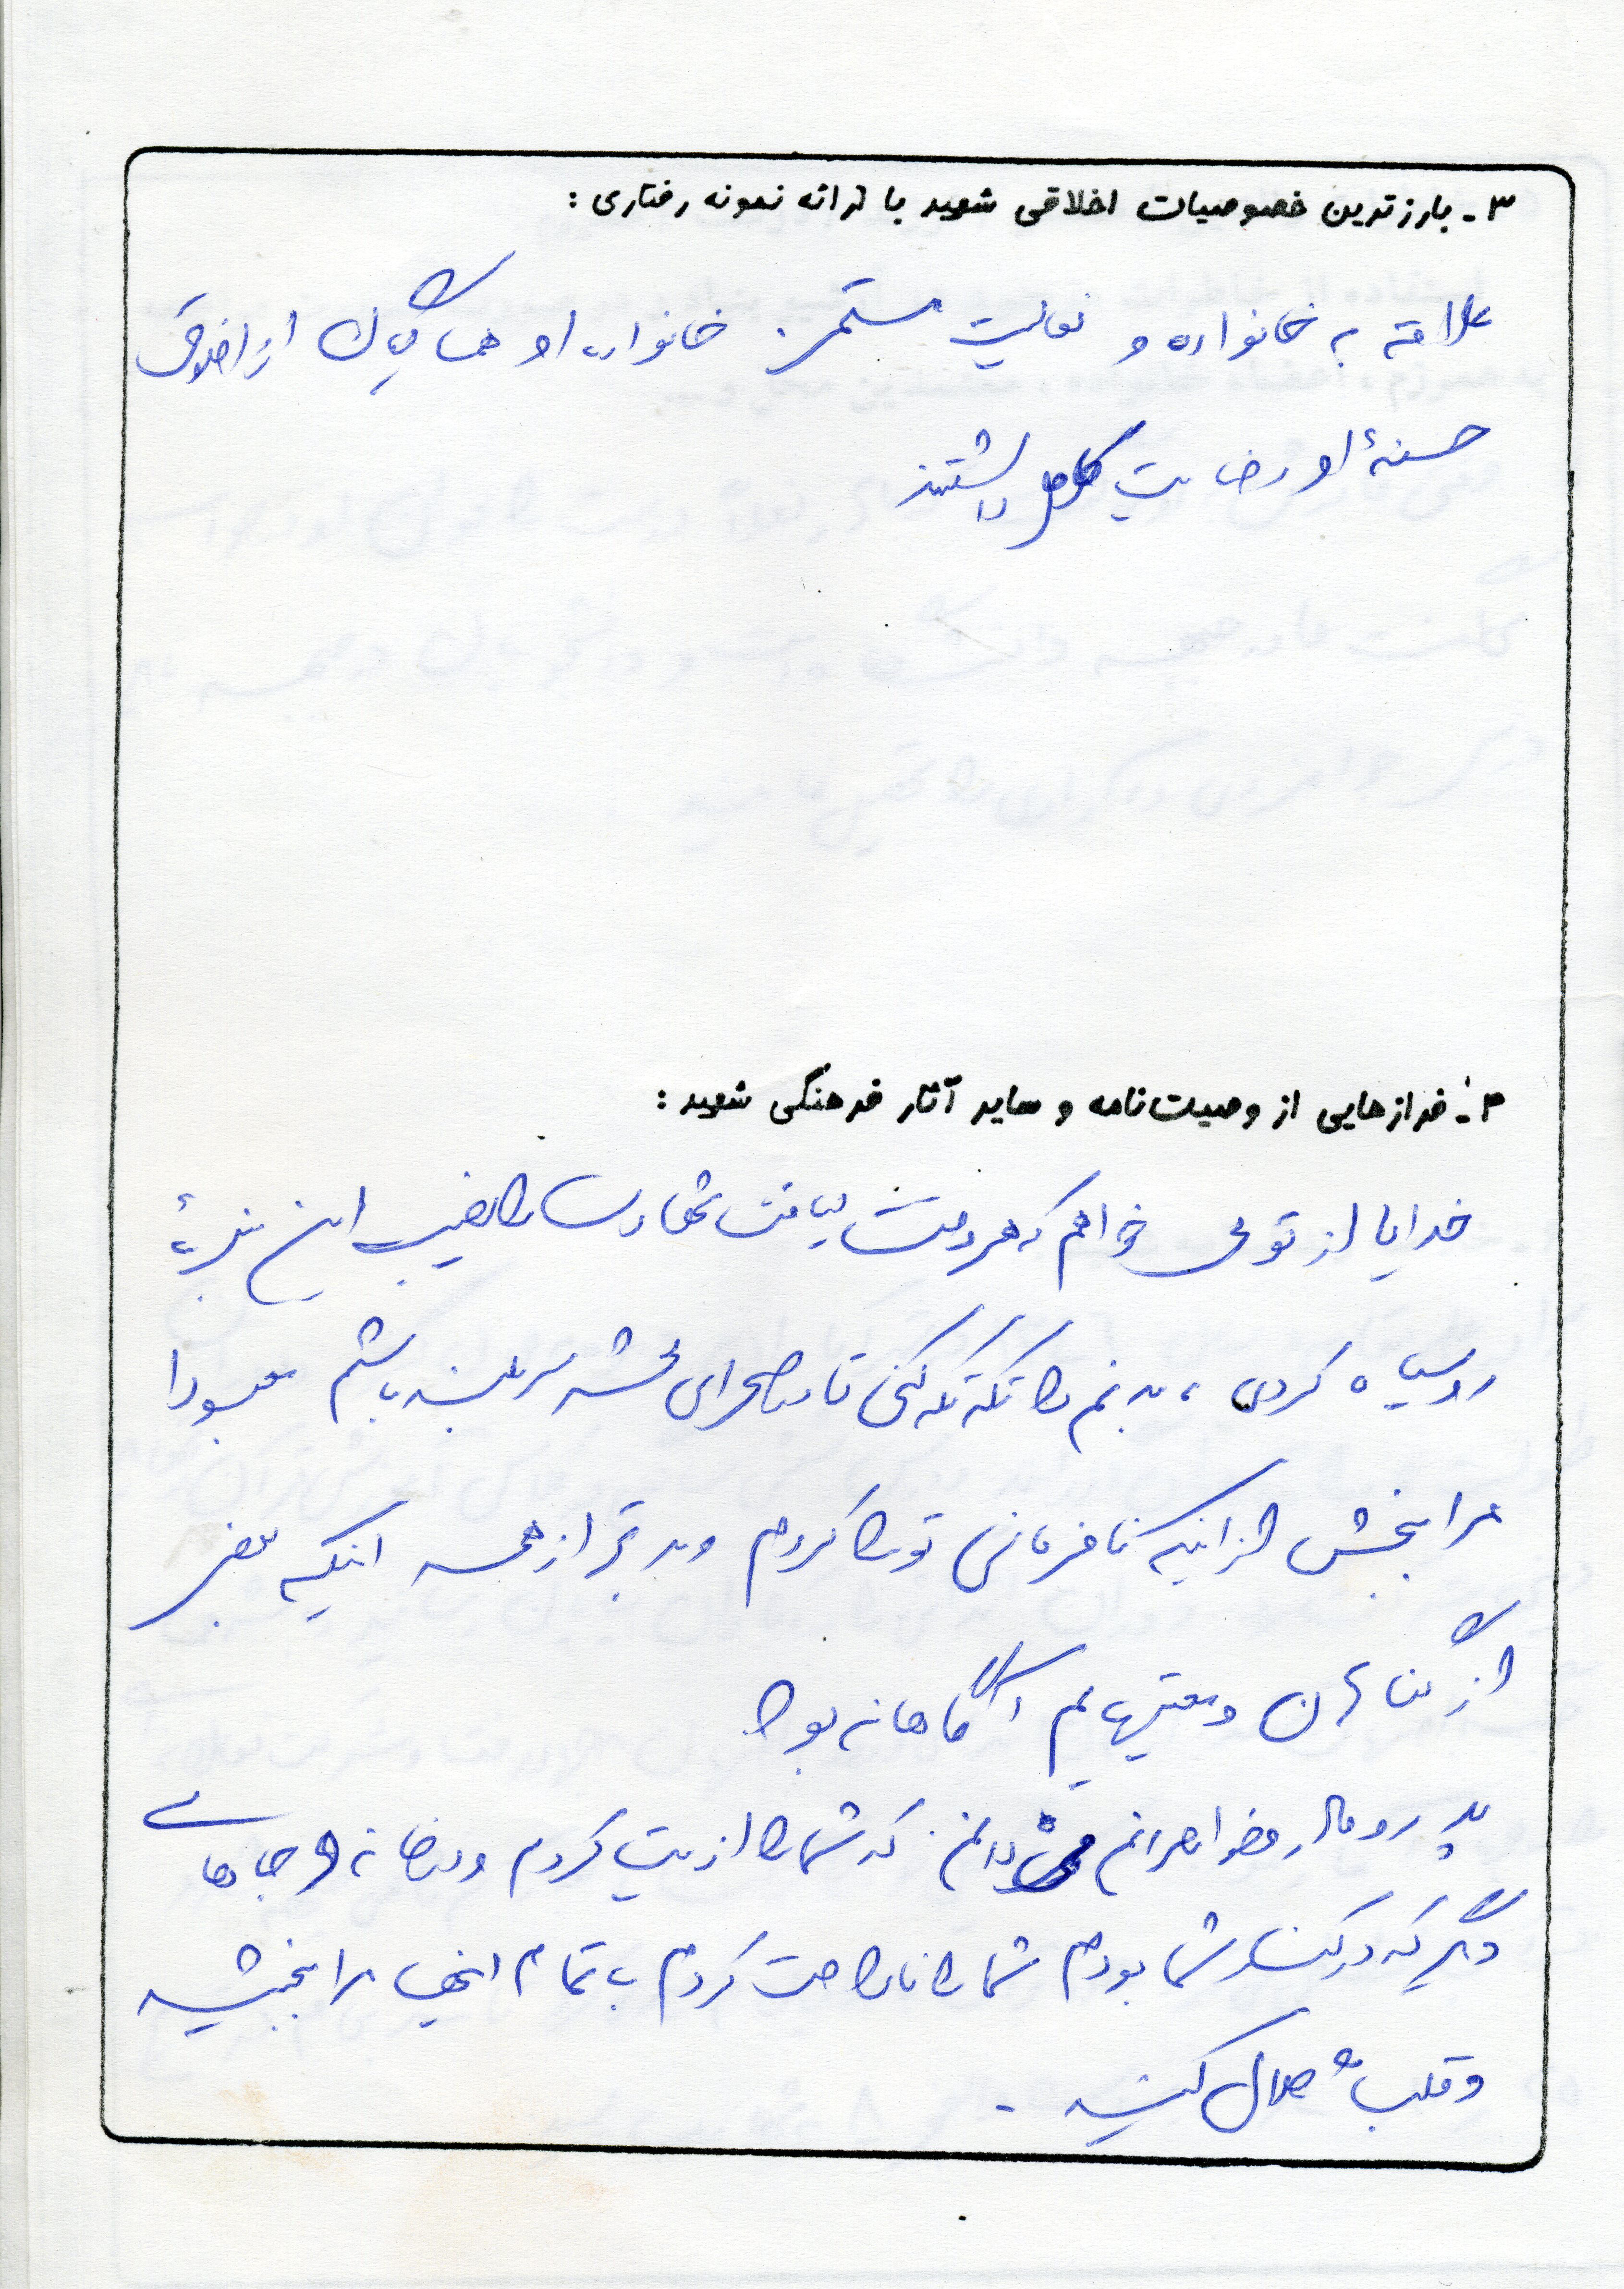 ۳ـ بارزترین خصوصیات اخلاقی شهید با ارائه نمونه رفتاری:
علاقه به خانواده و فعالیت مستمر. خانواده او همسایگان از اخلاق
حسنهٔ او رضایت کامل داشتند
۴ـ فرازهایی از وصیت‌نامه و سایر آثار فرهنگی شهید:
خدایا از تو می خواهم که هر وقت لیاقت شهادت را نصیب این بندهٔ
روسیاه کردی، بدنم را تکه تکه کنی تا در صحرای محشر سربلند باشم معبودا
مرا ببخش از اینکه نافرمانی تو را کردم و بدتر از همه اینکه بعضی
از گناهان و معصیتهایم آگاهانه بود
پدر و مادر و خواهرانم می دانم که شما را اذیت کردم و در خانه و جاهای
دیگر که در کنار شما بودم شما را ناراحت کردم با تمام اینها مرا ببخشید
و قلباً حلال کنید.